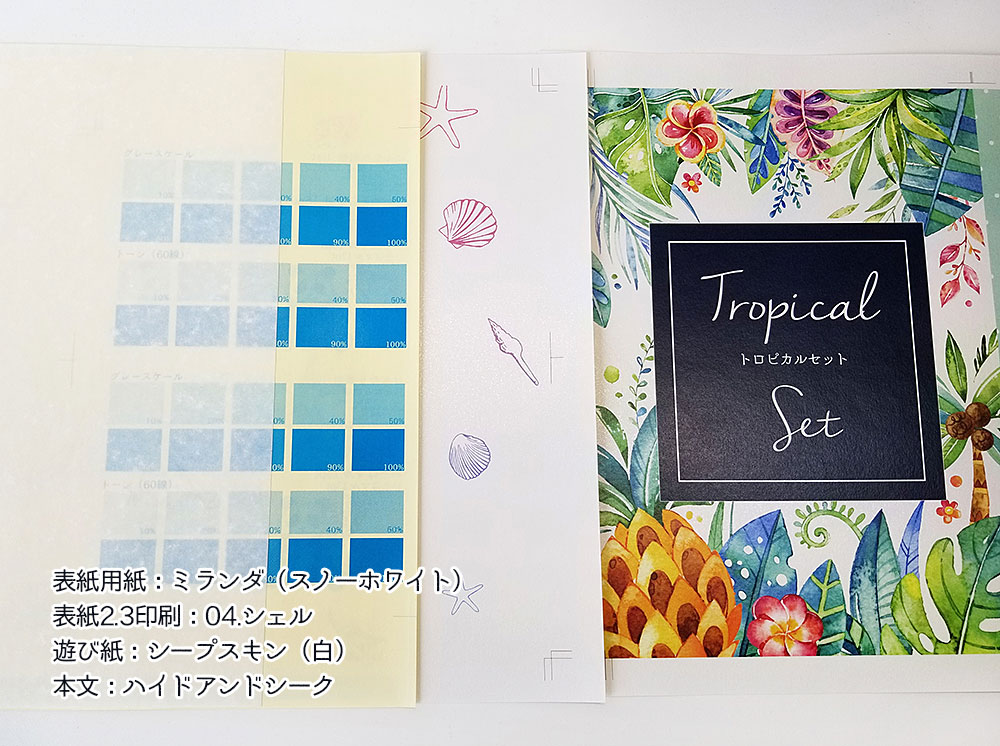 グレースケール
10%
40%
50%
0%
90%
100%
トーン（60線）
10%
0%
40%
50%
0%
90%
100%
グレースケール
10%
0%
40%
50%
0%
90%
100%
トーン（60線）
10%
0%
40%
50%
0%
90%
100%
Tropical
トロピカルセット
Set
表紙用紙：ミランダ（スノーホワイト）
表紙2.3印刷：04.シェル
遊び紙：シープスキン（白）
本文：ハイドアンドシーク